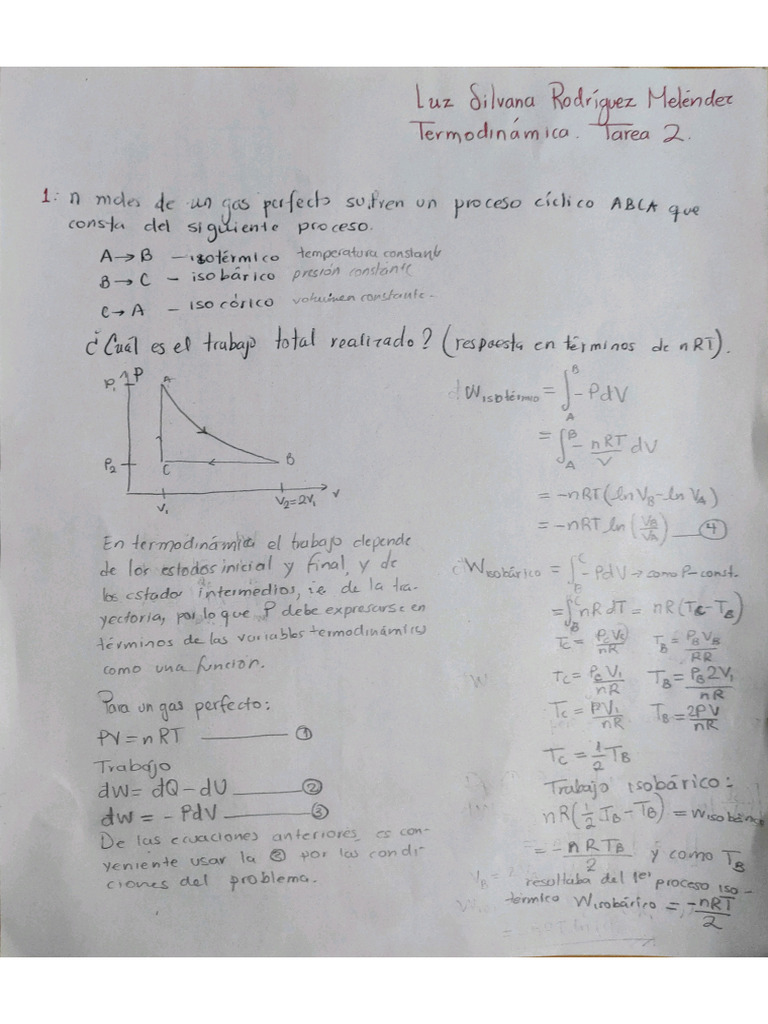 Luz Silvana Rodríguez Meléndez
Termodinámica. Tarea 2.
1. n moles de un gas perfecto sufren un proceso cíclico ABCA que
consta del siguiente proceso.
A→B – isotérmico temperatura constante
B→C – isobárico presión constante
C→A – isocórico volumen constante.
¿Cuál es el trabajo total realizado? (respuesta en términos de nRT).
P
P₁
A
P₂
C
B
V₁
V₂=2V₁
V
En termodinámica el trabajo depende
de los estados inicial y final, y de
los estados intermedios, i.e. de la tra-
yectoria, por lo que P debe expresarse en
términos de las variables termodinámicas
como una función.
Para un gas perfecto:
PV = nRT ——— ①
Trabajo
dW = dQ – dU ——— ②
dW = – PdV ——— ③
De las ecuaciones anteriores, es con-
veniente usar la ③ por las condi-
ciones del problema.
W isotérmico = ∫_A^B –PdV
= ∫_A^B – nRT/V dV
= –nRT (ln V_B – ln V_A)
= –nRT ln (V_B/V_A) ——— ④
W isobárico = ∫_B^C –PdV → como P – const.
= ∫_B^C nRdT = nR(T_C – T_B)
T_C = P_C V_C/nR T_B = P_B V_B/RR
T_C = P_C V₁/nR T_B = P_B 2V₁/nR
T_C = PV₁/nR T_B = 2PV/nR
T_C = 1/2 T_B
Trabajo isobárico:
nR(1/2 T_B – T_B) = W isobárico
= – nRT_B/2 y como T_B
resultaba del 1er proceso iso-
térmico W isobárico = –nRT/2